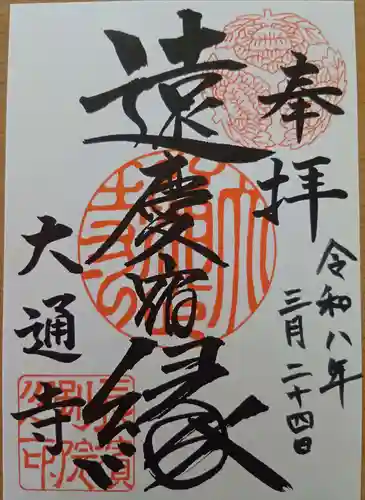 奉拝
令和八年
三月二十四日
遠慶宿縁
大通寺
長濱別院